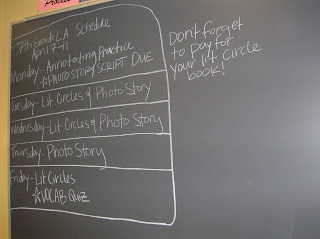 7th Grade LA Schedule
April 7-11
Monday- Annotating Practice
☆PHOTO STORY SCRIPT DUE
Tuesday- Lit Circles & Photo Story
Wednesday- Lit Circles & Photo Story
Thursday- Photo Story
Friday- Lit Circles
☆VOCAB Quiz
Don't forget
to pay for
your lit Circle
book!